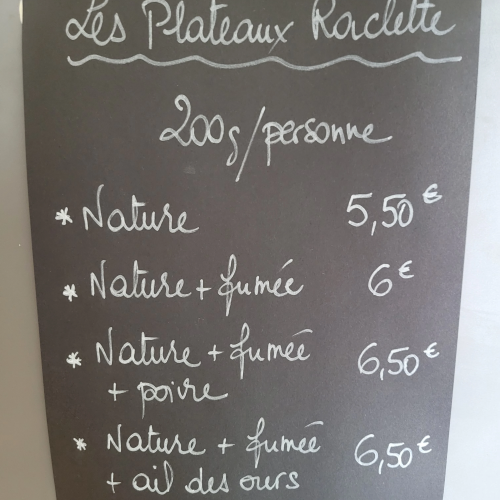 Les Plateaux Raclette
200g/personne
* Nature 5,50€
* Nature + fumée 6€
* Nature + fumée 6,50€
+ poivre
* Nature + fumée 6,50€
+ ail des ours